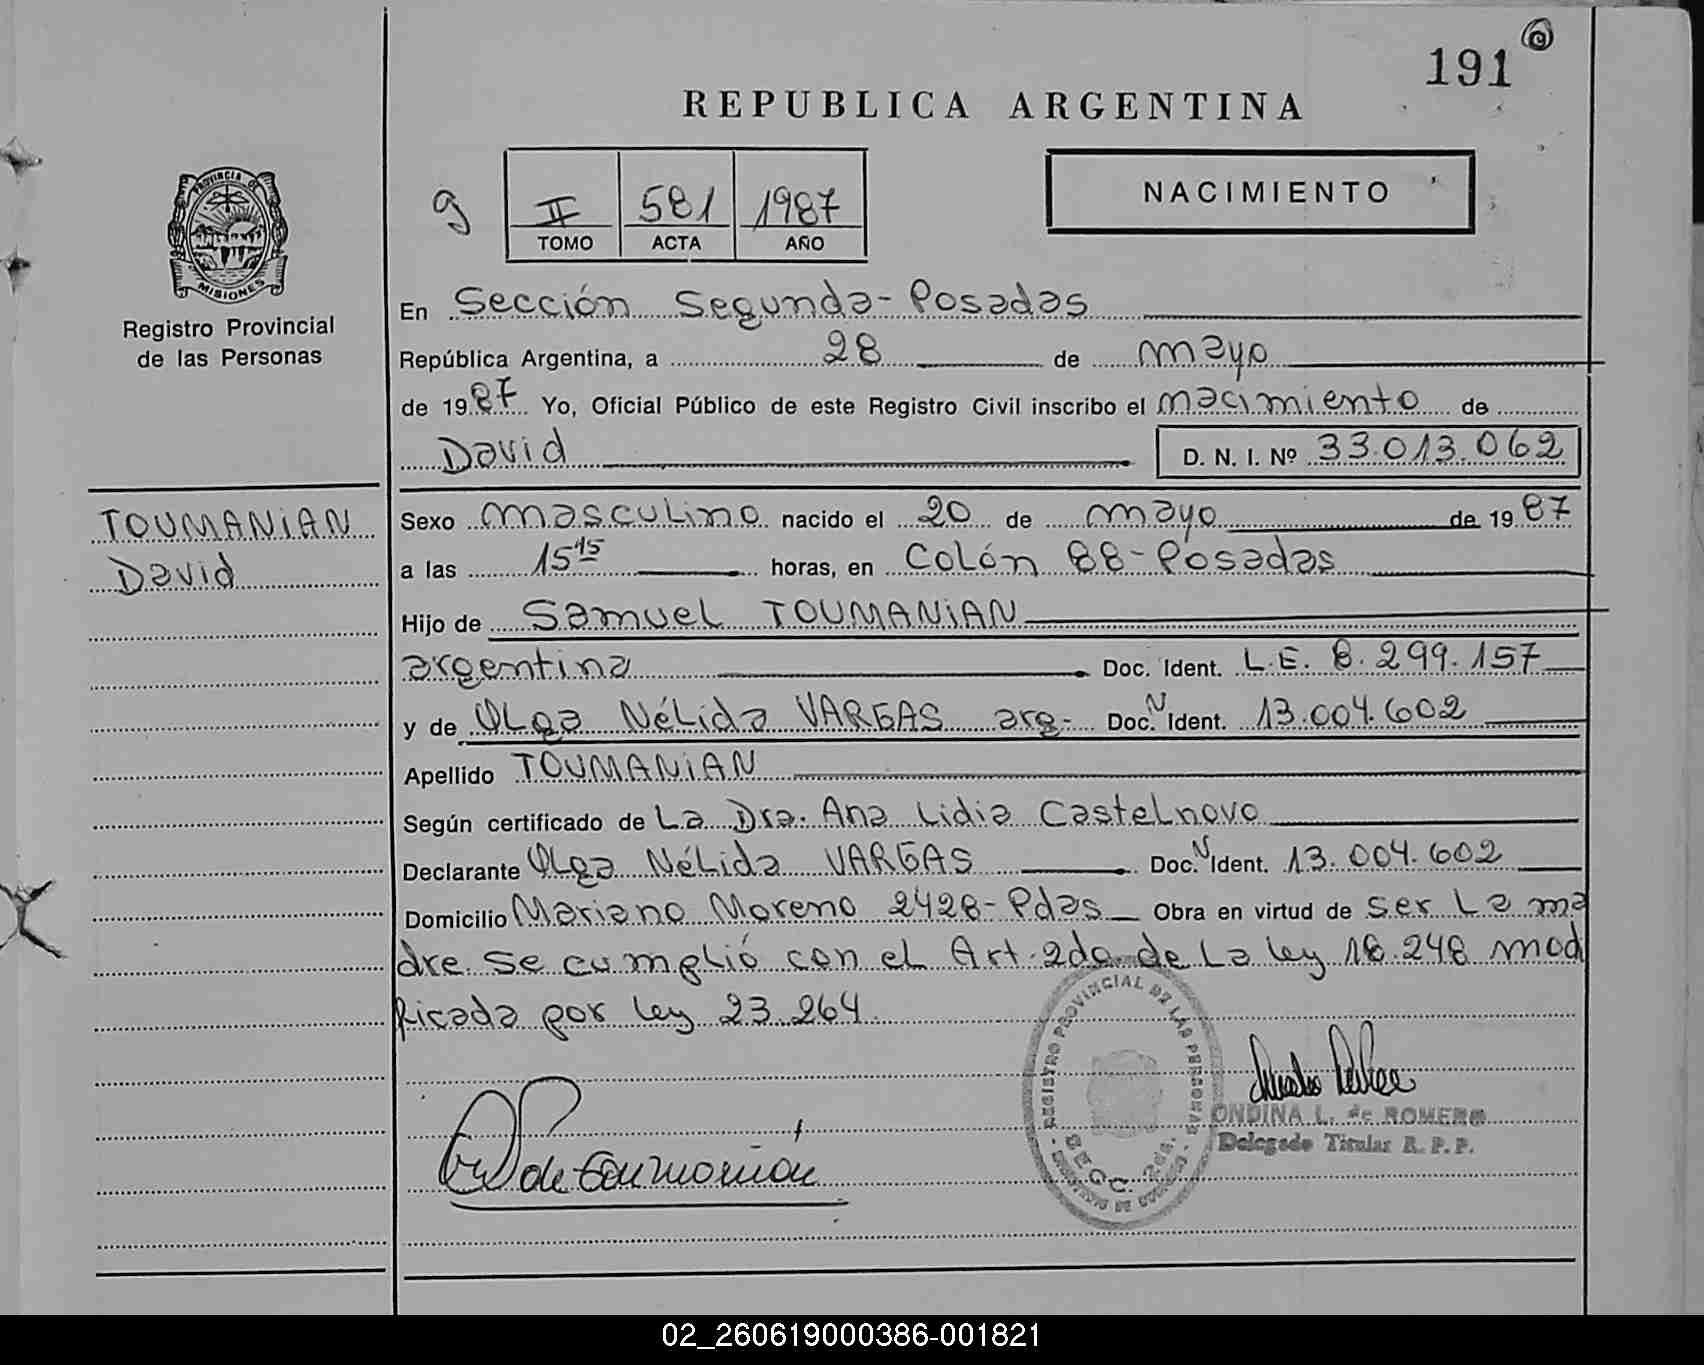 191
REPUBLICA ARGENTINA
PROVINCIA DE
MISIONES
Registro Provincial
de las Personas
g
II 581 1987
TOMO ACTA AÑO
NACIMIENTO
En Sección Segunda - Posadas
República Argentina, a 28 de mayo
de 1987 Yo, Oficial Público de este Registro Civil inscribo el nacimiento de
David D. N. I. Nº 33.013.062
TOUMANIAN
David
Sexo masculino nacido el 20 de mayo de 1987
a las 15 15 horas, en Colón 88 - Posadas
Hijo de Samuel TOUMANIAN
argentina Doc. Ident. L.E. 8.299.157
y de Olga Nélida VARGAS arg- Doc. N Ident. 13.004.602
Apellido TOUMANIAN
Según certificado de La Dra. Ana Lidia Castelnovo
Declarante Olga Nélida VARGAS Doc. N Ident. 13.004.602
Domicilio Mariano Moreno 2428 - Pdas Obra en virtud de ser La ma
dre. Se cumplió con el Art. 2do. de La Ley 18.248 modi
ficada por Ley 23.264
REGISTRO PROVINCIAL DE LAS PERSONAS
SECC. 2da.
de Toumanian
ONDINA L. de ROMERO
Delegado Titular R. P. P.
02_260619000386-001821